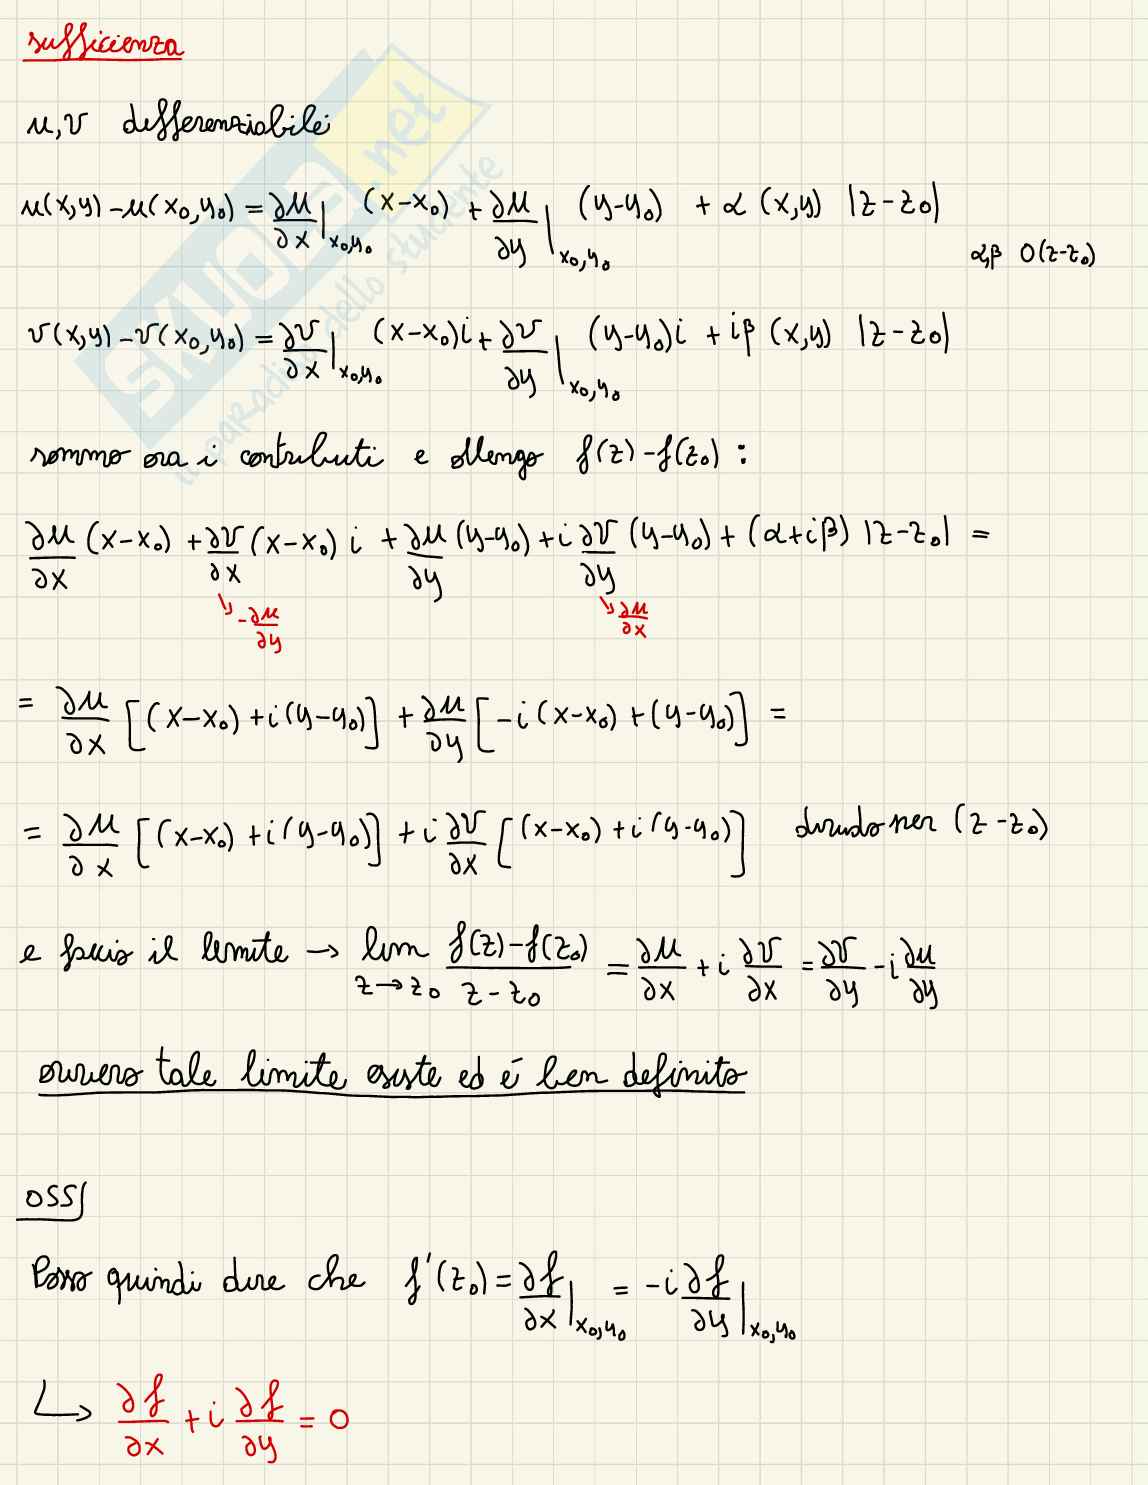 sufficienza
u,v differenziabili
u(x,y) - u(x₀,y₀) = ∂u/∂x|x₀,y₀ (x-x₀) + ∂u/∂y|x₀,y₀ (y-y₀) + α (x,y) |z-z₀|
α,β O(z-z₀)
v(x,y) - v(x₀,y₀) = ∂v/∂x|x₀,y₀ (x-x₀)i + ∂v/∂y|x₀,y₀ (y-y₀)i + iβ (x,y) |z-z₀|
sommo ora i contributi e ottengo f(z) - f(z₀) :
∂u/∂x (x-x₀) + ∂v/∂x (x-x₀) i + ∂u/∂y (y-y₀) + i ∂v/∂y (y-y₀) + (α+iβ) |z-z₀| =
↘ -∂u/∂y ↘ ∂u/∂x
= ∂u/∂x [(x-x₀) + i(y-y₀)] + ∂u/∂y [-i(x-x₀) + (y-y₀)] =
= ∂u/∂x [(x-x₀) + i(y-y₀)] + i ∂v/∂x [(x-x₀) + i(y-y₀)] divido per (z-z₀)
e faccio il limite → lim z→z₀ f(z)-f(z₀)/z-z₀ = ∂u/∂x + i ∂v/∂x = ∂v/∂y - i ∂u/∂y
ovvero tale limite esiste ed é ben definito
OSS
Posso quindi dire che f'(z₀) = ∂f/∂x|x₀,y₀ = -i ∂f/∂y|x₀,y₀
↳ ∂f/∂x + i ∂f/∂y = 0
SKUOLA.net
il paradiso dello studente